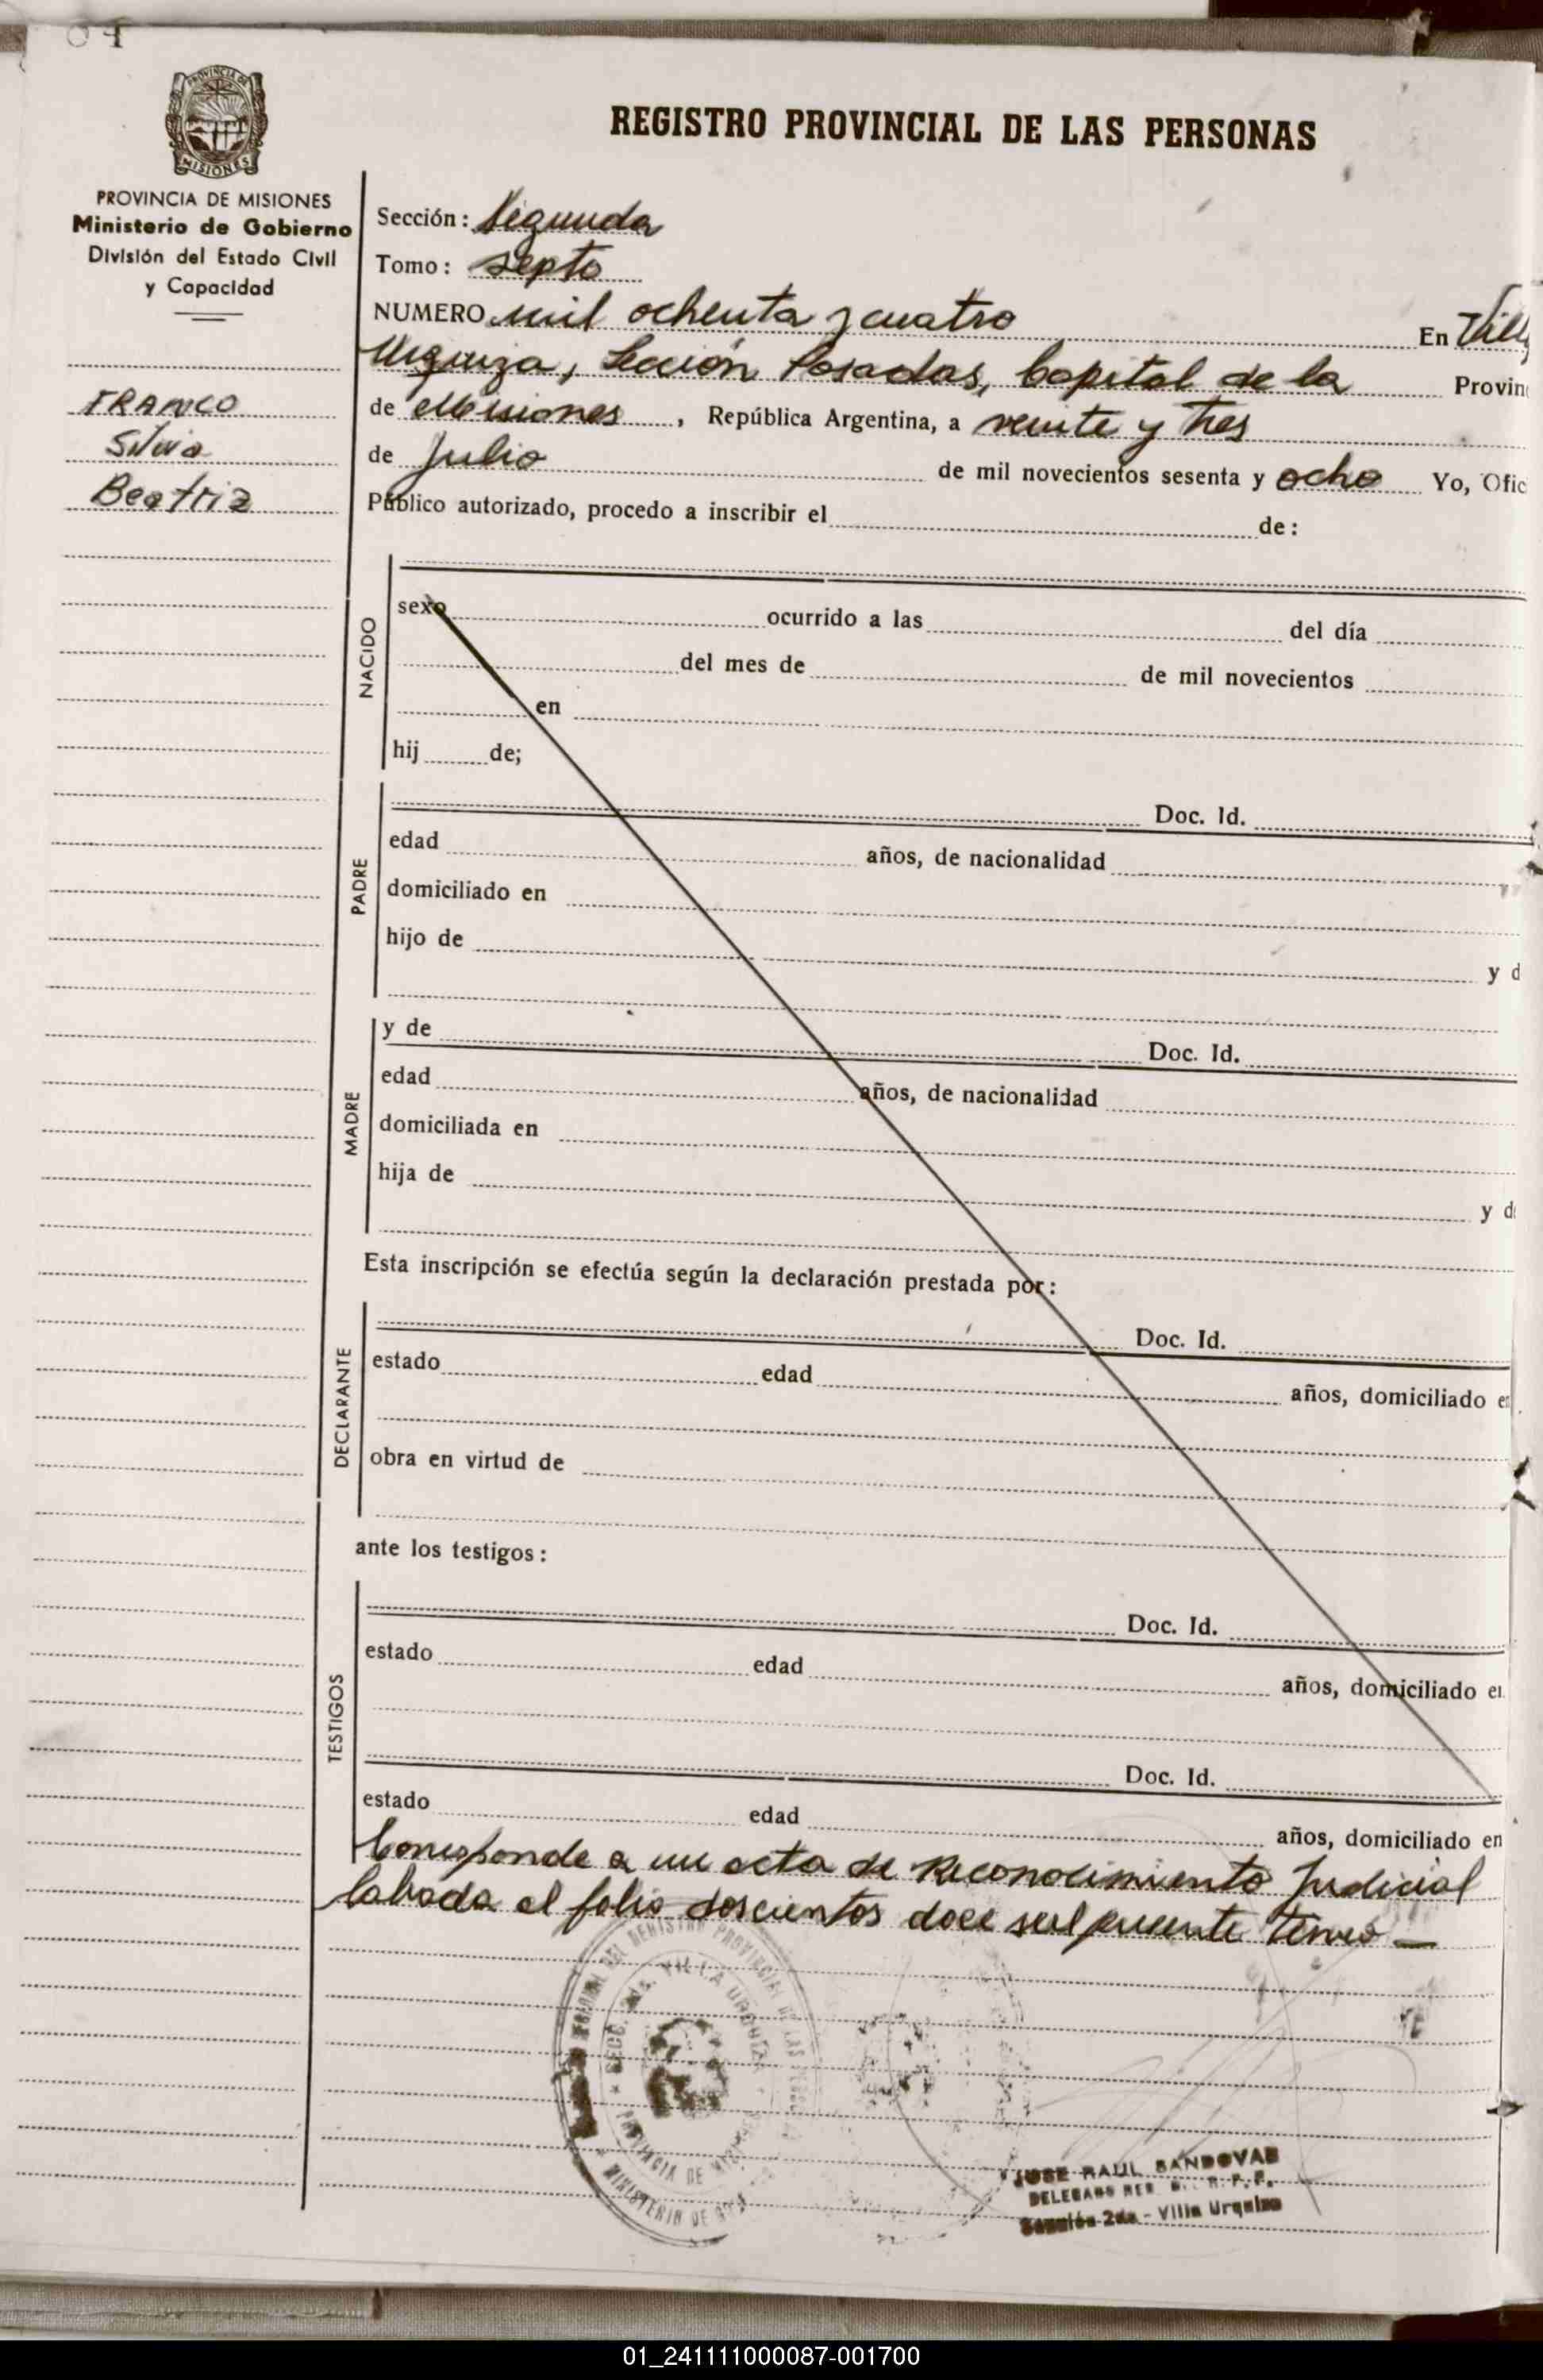 07
PROVINCIA DE
MISIONES
PROVINCIA DE MISIONES
Ministerio de Gobierno
División del Estado Civil
y Capacidad
REGISTRO PROVINCIAL DE LAS PERSONAS
Sección: Segunda
Tomo: septo
NUMERO mil ochenta y cuatro En Vill
Urquiza, Sección Posadas, Capital de la Provin
de Misiones, República Argentina, a veinte y tres
de Julio de mil novecientos sesenta y ocho Yo, Ofic
Público autorizado, procedo a inscribir el de:
FRANCO
Silvia
Beatriz
NACIDO
sexo ocurrido a las del día
del mes de de mil novecientos
en
hij de;
PADRE
Doc. Id.
edad años, de nacionalidad
domiciliado en
hijo de y d
MADRE
y de Doc. Id.
edad años, de nacionalidad
domiciliada en
hija de y d
Esta inscripción se efectúa según la declaración prestada por:
DECLARANTE
Doc. Id.
estado edad años, domiciliado e
obra en virtud de
ante los testigos:
TESTIGOS
Doc. Id.
estado edad años, domiciliado e
Doc. Id.
estado edad años, domiciliado en
Corresponde a un acta de Reconocimiento Judicial
labada al folio doscientos doce del presente tomo —
SECC. 2da. VILLA URQUIZA
PROVINCIA DE
MINISTERIO DE
JOSE RAUL SANDOVAL
DELEGADO R. P. P.
Sección 2da - Villa Urquiza
01_241111000087-001700